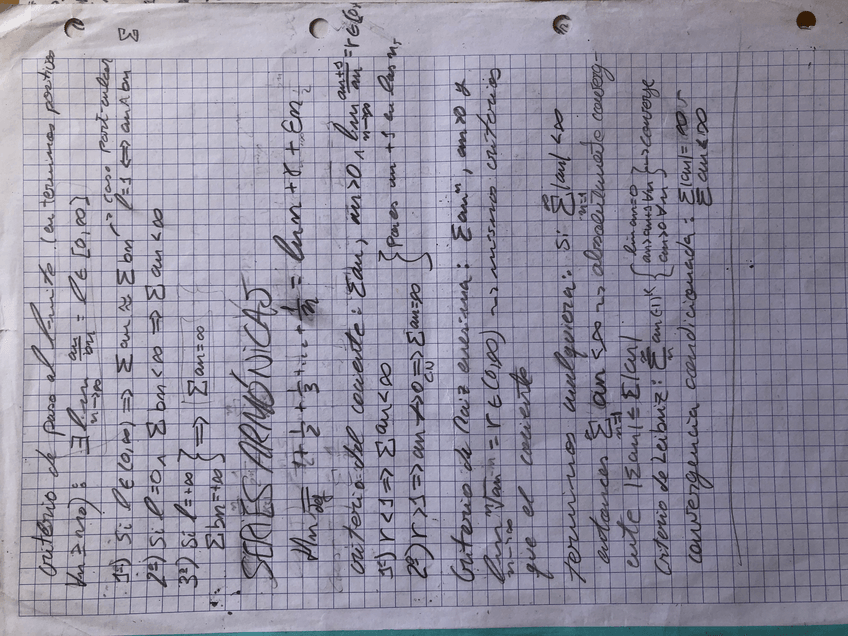 Criterio de paso al límite (en términos positivos
∀n ≥ n₀): ∃ lim_{n→∞} an/bn = l ∈ [0,∞]
1º) Si l ∈ (0,∞) ⇒ Σan ≈ Σbn → caso particular l=1 ⇔ an ~ bn
2º) Si l=0 ∧ Σbn < ∞ ⇒ Σan < ∞
3º) Si l=+∞
Σbn=+∞ } ⇒ Σan=∞
SERIES ARMÓNICAS
Hn = 1 + 1/2 + 1/3 + ... + 1/n = ln n + γ + εn
criterio del cociente: Σan, an>0 ∧ lim_{n→∞} an+1/an = r ∈ [0,
1º) r<1 ⇒ Σan<∞
2º) r>1 ⇒ an ↛ 0 ⇒ Σan=∞ } Pones an+1 en las n,
Criterio de Raiz enesima: Σan, an>0 y
lim_{n→∞} ⁿ√an = r ∈ (0,∞) → mismos criterios
que el cociente
términos cualquiera: Si Σ_{n=1}^∞ |an| < ∞
entonces Σ_{n=1}^∞ an < ∞ → absolutamente converg-
ente |Σan| ≤ Σ|an|
Criterio de Leibniz: Σ an(-1)ⁿ { lim an=0 an>an+1 ∀n an>0 ∀n } → converge
convergencia condicionada: Σ|an|=∞ Σan<∞